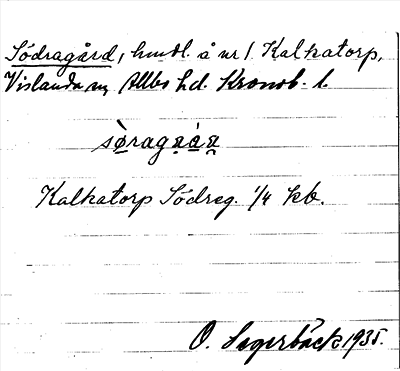 Södragård, hmdl. å nr 1 Kalkatorp,
Vislanda sn Allbo hd. Kronob. l.
sø̀ragɑ́ɳ
Kalkatorp Södreg. 1/4 kb.
O. Segerbäck 1935.